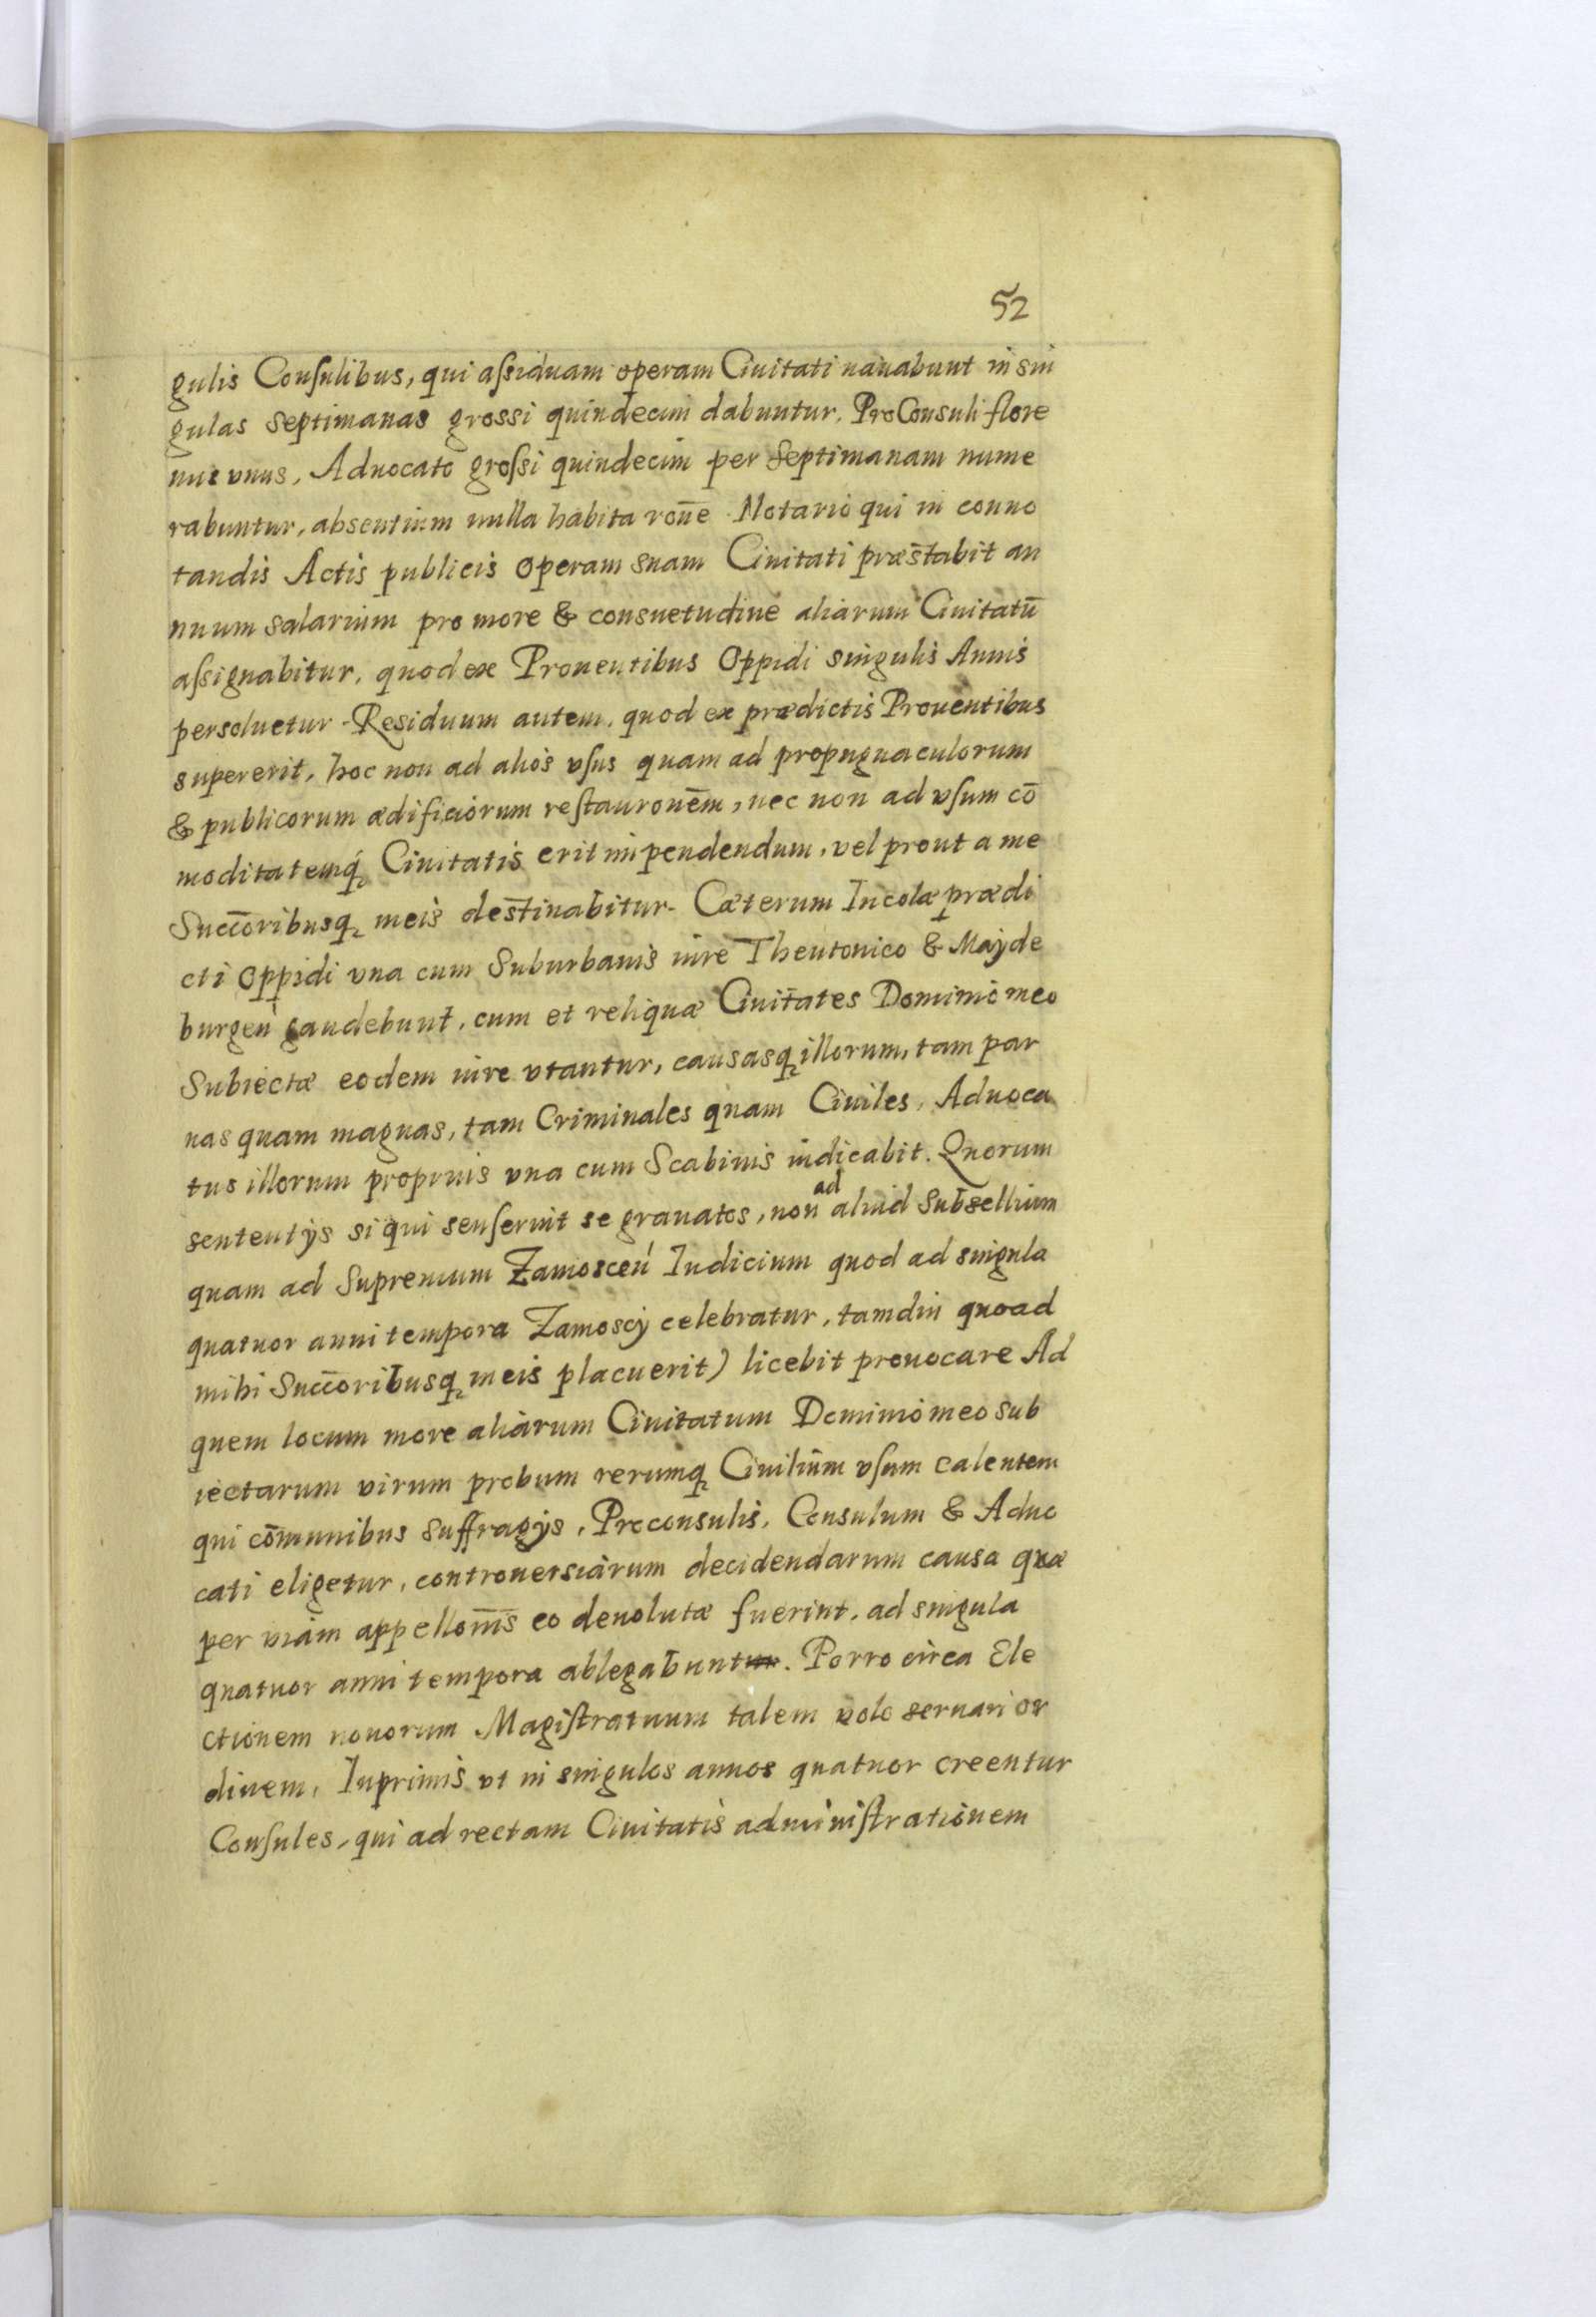 52
gulis Consulibus, qui assiduam operam Ciuitati nauabunt in sin
gulas septimanas grossi quindecim dabuntur. ProConsuli flore
nus vnus, Aduocato grossi quindecim per septimanam nume
rabuntur, absentium nulla habita rōne. Notario qui in conno
tandis Actis publicis operam suam Ciuitati præstabit an
nuum salarium pro more & consuetudine aliarum Ciuitatū
assignabitur, quod ex Prouentibus Oppidi singulis Annis
persoluetur. Residuum autem, quod ex prædictis Prouentibus
supererit, hoc non ad alios vsus quam ad propugnaculorum
& publicorum ædificiorum restauronēm, nec non ad vsum cō
moditatemq́; Ciuitatis erit impendendum, vel prout a me
Succ̄oribusq; meis destinabitur. Cæterum Incolæ prædi
cti Oppidi vna cum Suburbanis iure Theutonico & Mayde
burgeń gaudebunt, cum et reliquæ Ciuitates Dominio meo
Subiectæ eodem iure vtantur, causasq; illorum, tam par
uas quam magnas, tam Criminales quam Ciuiles, Aduoca
tus illorum proprius vna cum Scabinis iudicabit. Quorum
sententijs si qui senserint se grauatos, non ad aliud Subsellium
quam ad Supremum Zamosceń Iudicium quod ad singula
quatuor anni tempora Zamoscij celebratur, tamdiu quoad
mihi Succ̄oribusq; meis placuerit) licebit prouocare Ad
quem locum more aliarum Ciuitatum Dominio meo sub
iectarum virum probum rerumq; Ciuilium vsum calentem
qui cōmunibus suffragijs, Proconsulis, Consulum & Aduo
cati eligetur, controuersiarum decidendarum causa quæ
per viam appellōnis eo deuolutæ fuerint, ad singula
quatuor anni tempora ablegabuntur. Porro circa Ele
ctionem nouorum Magistratuum talem volo seruari or
dinem, Inprimis vt in singulos annos quatuor creentur
Consules, qui ad rectam Ciuitatis administrationem